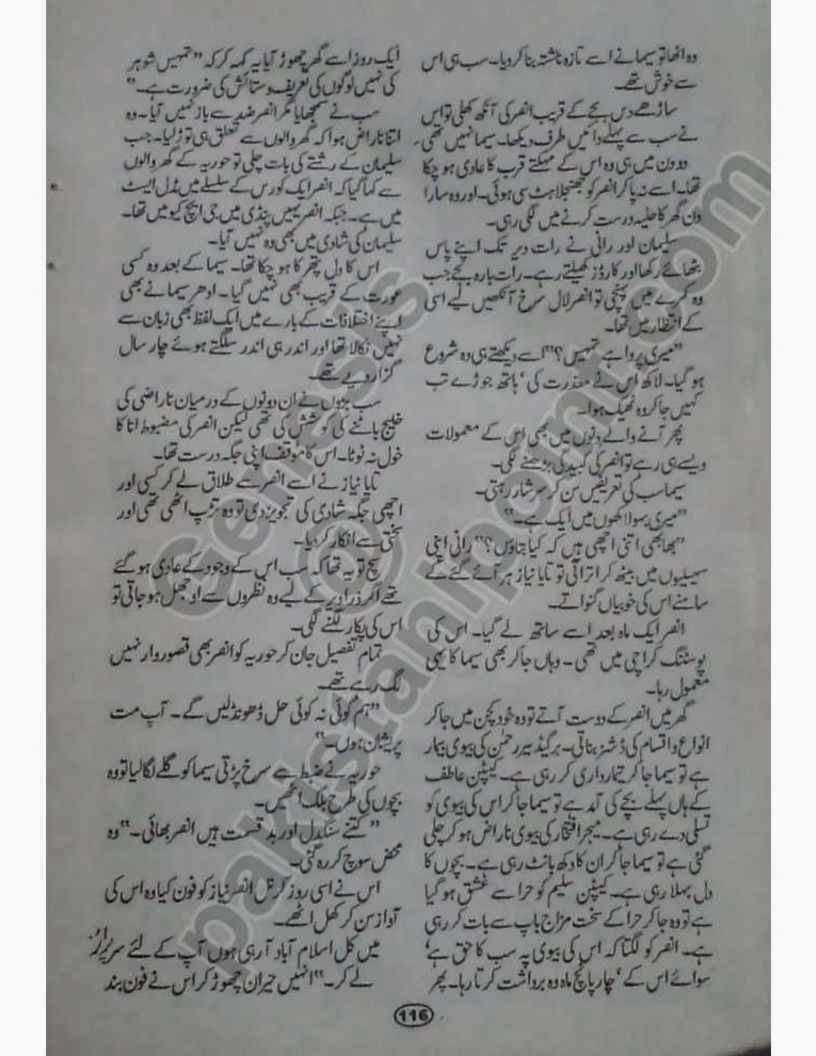 وہ اٹھا تو سیما نے اسے تازہ ناشتہ بنا کر دیا۔ سب ہی اس
سے خوش تھے۔
ساڑھے دس بجے کے قریب انصر کی آنکھ کھلی تو اس
نے سب سے پہلے دائیں طرف دیکھا۔ سیما نہیں تھی۔
دو دن میں ہی وہ اس کے مہکتے قرب کا عادی ہو چکا
تھا۔ اسے نہ پا کر انصر کو جھنجلاہٹ سی ہوئی۔ اور وہ سارا
دن گھر کا حلیہ درست کرنے میں لگی رہی۔
سلیمان اور رانی نے رات دیر تک اپنے پاس
بٹھائے رکھا اور کارڈز کھیلتے رہے۔ رات بارہ بجے جب
وہ کمرے میں پہنچی تو انصر لال سرخ آنکھیں لیے اسی
کے انتظار میں تھا۔
”میری پروا ہے تمہیں؟“ اسے دیکھتے ہی وہ شروع
ہو گیا۔ لاکھ اس نے معذرت کی‘ ہاتھ جوڑے تب
کہیں جا کر وہ ٹھیک ہوا۔
پھر آنے والے دنوں میں بھی اس کے معمولات
ویسے ہی رہے تو انصر کی کبیدگی بڑھنے لگی۔
سیما سب کی تعریفیں سن کر سرشار رہتی۔
”میری بہو لاکھوں میں ایک ہے۔“
”بھابھی اتنی اچھی ہیں کہ کیا بتاؤں؟“ رانی اپنی
سہیلیوں میں بیٹھ کر اتراتی تو تایا نیاز ہر آئے گئے کے
سامنے اس کی خوبیاں گنواتے۔
انصر ایک ماہ بعد اسے ساتھ لے گیا۔ اس کی
پوسٹنگ کراچی میں تھی۔ وہاں جا کر بھی سیما کا یہی
معمول رہا۔
گھر میں انصر کے دوست آتے تو وہ خود کچن میں جا کر
انواع و اقسام کی ڈشز بناتی۔ بریگیڈیئر رحمٰن کی بیوی بیمار
ہے تو سیما جا کر تیمارداری کر رہی ہے۔ کیپٹن عاطف
کے ہاں پہلے بچے کی آمد ہے تو سیما جا کر اس کی بیوی کو
تسلی دے رہی ہے۔ میجر افتخار کی بیوی ناراض ہو کر چلی
گئی ہے تو سیما جا کر ان کا دکھ بانٹ رہی ہے۔ بچوں کا
دل بہلا رہی ہے۔ کیپٹن سلیم کو حرا سے عشق ہو گیا
ہے تو وہ جا کر حرا کے سخت مزاج باپ سے بات کر رہی
ہے۔ انصر کو لگتا کہ اس کی بیوی پہ سب کا حق ہے‘
سوائے اس کے‘ چار پانچ ماہ وہ برداشت کرتا رہا۔ پھر
ایک روز اسے گھر چھوڑ آیا یہ کہہ کر کہ ”تمہیں شوہر
کی نہیں لوگوں کی تعریف و ستائش کی ضرورت ہے۔“
سب نے سمجھایا مگر انصر ضد سے باز نہیں آیا۔ وہ
اتنا ناراض ہوا کہ گھر والوں سے تعلق ہی توڑ لیا۔ جب
سلیمان کے رشتے کی بات چلی تو حوریہ کے گھر والوں
سے کہا گیا کہ انصر ایک کورس کے سلسلے میں مڈل ایسٹ
میں ہے۔ جبکہ انصر یہیں پنڈی میں جی ایچ کیو میں تھا۔
سلیمان کی شادی میں بھی وہ نہیں آیا۔
اس کا دل پتھر کا ہو چکا تھا۔ سیما کے بعد وہ کسی
عورت کے قریب بھی نہیں گیا۔ ادھر سیما نے بھی
اپنے اختلافات کے بارے میں ایک لفظ بھی زبان سے
نہیں نکالا تھا اور اندر ہی اندر سلگتے ہوئے چار سال
گزار دیے تھے۔
سب بڑوں نے ان دونوں کے درمیان ناراضی کی
خلیج پاٹنے کی کوشش کی تھی لیکن انصر کی مضبوط انا کا
خول نہ ٹوٹا۔ اس کا موقف اپنی جگہ درست تھا۔
تایا نیاز نے اسے انصر سے طلاق لے کر کسی اور
اچھی جگہ شادی کی تجویز دی تو وہ تڑپ اٹھی تھی اور
سختی سے انکار کر دیا۔
سچ تو یہ تھا کہ سب اس کے وجود کے عادی ہو گئے
تھے اگر ذرا دیر کے لیے وہ نظروں سے اوجھل ہو جاتی تو
اس کی پکار لگنے لگی۔
تمام تفصیل جان کر حوریہ کو انصر بھی قصوروار نہیں
لگ رہے تھے۔
”ہم کوئی نہ کوئی حل ڈھونڈ لیں گے۔ آپ مت
پریشان ہوں۔“
حوریہ نے ضبط سے سرخ پڑتی سیما کو گلے لگا لیا تو وہ
بچوں کی طرح بلک اٹھیں۔
”کتنے سنگدل اور بدقسمت ہیں انصر بھائی۔“ وہ
محض سوچ کر رہ گئی۔
اس نے اسی روز کرنل انصر نیاز کو فون کیا وہ اس کی
آواز سن کر کھل اٹھے۔
میں کل اسلام آباد آ رہی ہوں آپ کے لئے سرپرائز
لے کر۔“ انہیں حیران چھوڑ کر اس نے فون بند
116
Genesis
@
pakistanipoint.com